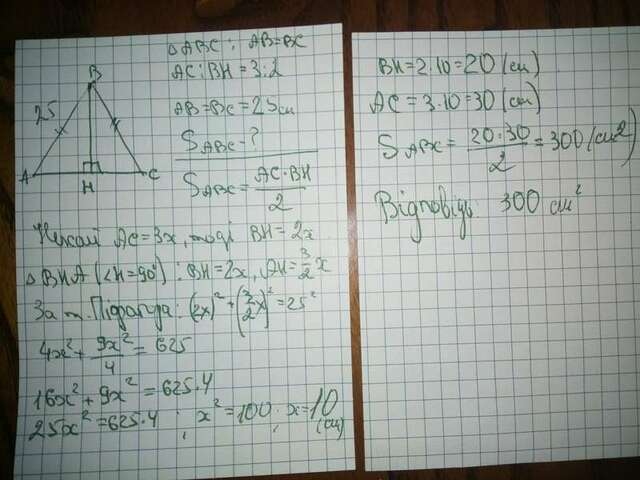 △ABC: AB=BC
AC:BH=3:2
AB=BC=25см
S ABC-?
S ABC = AC·BH / 2
B
25
A
H
C
Нехай AC=3x, тоді BH=2x
△BHA (<H=90°): BH=2x, AH=3/2 x
За т. Піфагора: (2x)² + (3/2 x)² = 25²
4x² + 9x²/4 = 625
16x² + 9x² = 625·4
25x² = 625·4 ; x² = 100 ; x = 10 (см)
BH=2·10=20 (см)
AC=3·10=30 (см)
S ABC = 20·30 / 2 = 300 (см²)
Відповідь: 300 см²